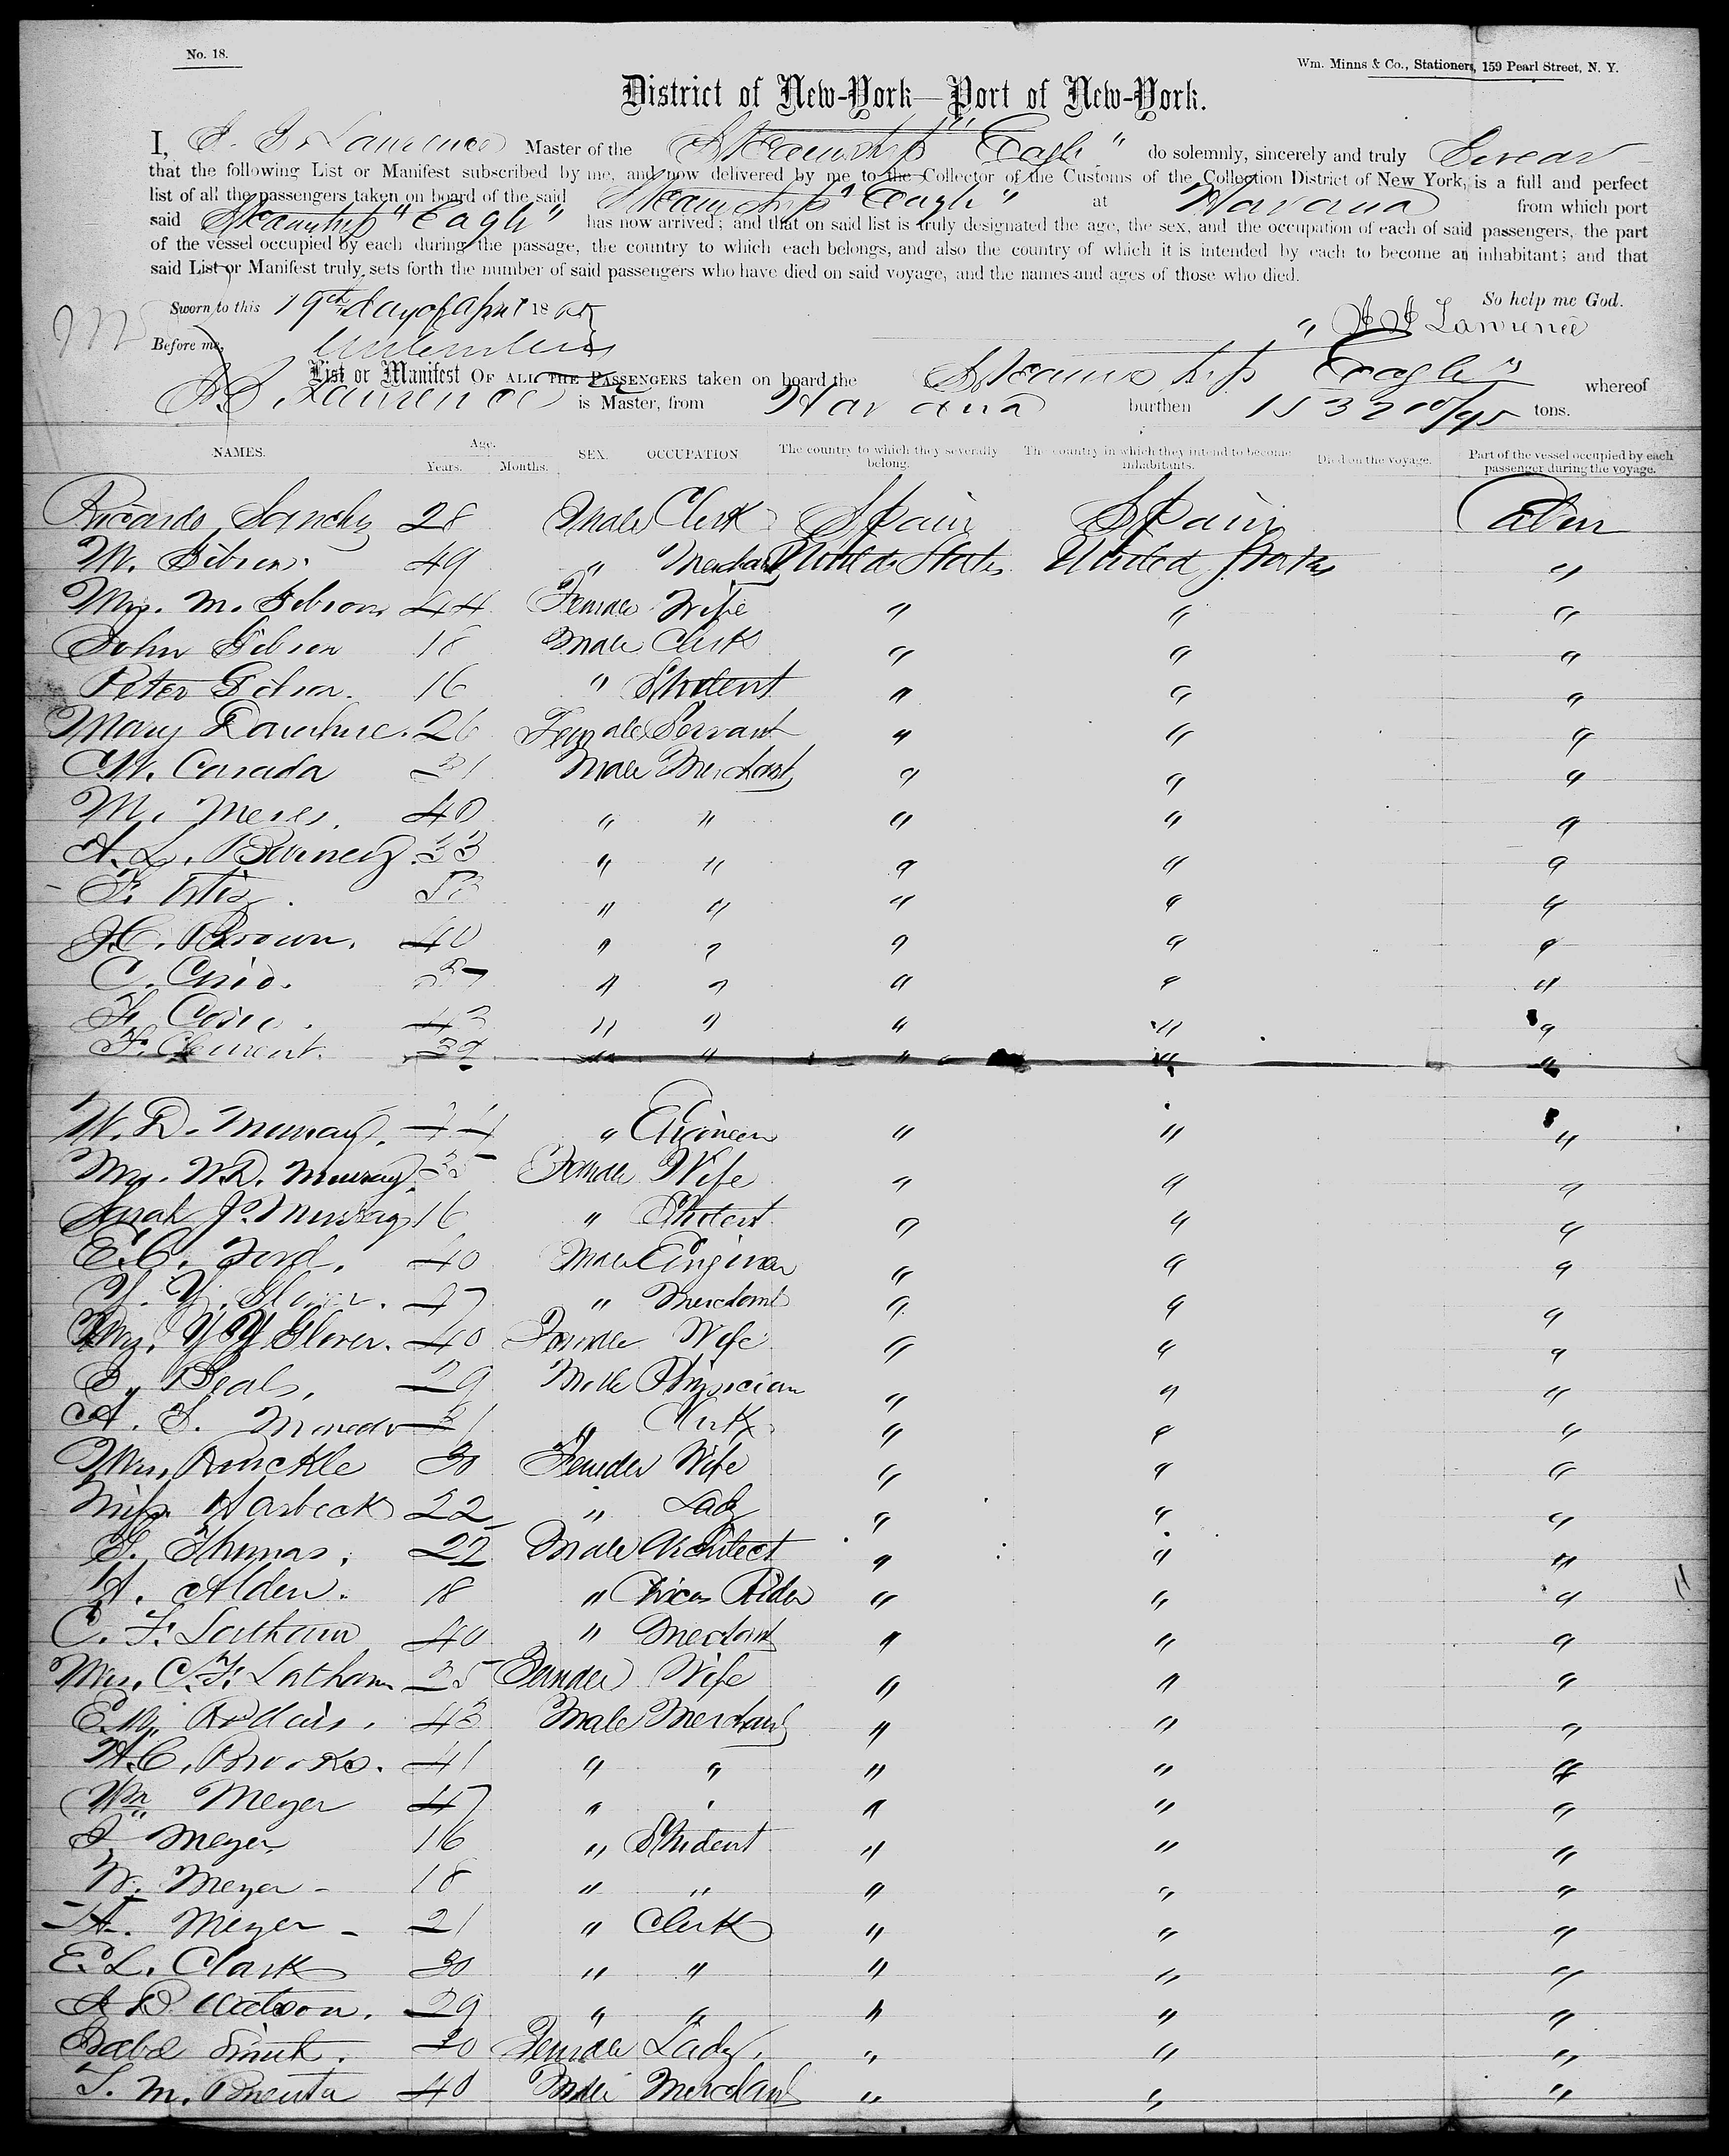 No. 18.
Wm. Minns & Co., Stationers, 159 Pearl Street, N. Y.
District of New-York—Port of New-York.
I, Lawrence Master of the Steamship "Eagle" do solemnly, sincerely and truly Swear
that the following List or Manifest subscribed by me, and now delivered by me to the Collector of the Customs of the Collection District of New York, is a full and perfect
list of all the passengers taken on board of the said Steamship "Eagle" at Havana from which port
said Steamship "Eagle" has now arrived; and that on said list is truly designated the age, the sex, and the occupation of each of said passengers, the part
of the vessel occupied by each during the passage, the country to which each belongs, and also the country of which it is intended by each to become an inhabitant; and that
said List or Manifest truly sets forth the number of said passengers who have died on said voyage, and the names and ages of those who died.
So help me God.
Sworn to this 19th day of April 1865
Lawrence
Before me,
List or Manifest OF ALL THE PASSENGERS taken on board the Steamship Eagle" whereof
Lawrence is Master, from Havana burthen tons.
NAMES. Age. Years. Months. SEX. OCCUPATION The country to which they severally belong. The country in which they intend to become inhabitants. Died on the voyage. Part of the vessel occupied by each passenger during the voyage.
Riccardo Sanchez 28 Male Clerk Spain Spain Cabin
W. Gibson 49 " Merchant United States United States "
Mrs. M. Gibson 44 Female Wife " " "
John Gibson 18 Male Clerk " " "
Peter Gibson. 16 " Student " " "
Mary 26 Female Servant " " "
C.W. Canada 31 Male Merchant " " "
M. 40 " " " " "
A. L. 33 " " " " "
F. Ortiz. " " " " "
J.C. Brown. 40 " " " " "
C. " " " " "
F. 43 " " " " "
F. Clement. 39 " " " " "
W. D. Murray. 44 " Engineer " " "
Mrs. W.D. Murray. 35 Female Wife " " "
Sarah J. Murray 16 " Student " " "
E.C. Ford. 40 Male Engineer " " "
Y. Y. Glover. 47 " Merchant " " "
Mrs. Y Y Glover. 40 Female Wife " " "
Beals, 29 Male Physician " " "
A. S. 31 " Clerk " " "
Mrs. Runckle 30 Female Wife " " "
Miss Harbeck 22 " Lady " " "
Thomas. 22 Male Architect " " "
A. Alden. 18 " Circus Rider " " "
C. F. Latham 40 " Merchant " " "
Mrs. C. F. Latham 35 Female Wife " " "
E.W. 43 Male Merchant " " "
H.C. Brooks. 41 " " " " "
Wm Meyer 47 " " " " "
Meyer 16 " Student " " "
W. Meyer 18 " " " " "
A. Meyer 21 " Clerk " " "
E. L. Clark 30 " " " " "
A D. Watson. 29 " " " " "
30 Female Lady. " " "
M. 40 Male Merchant " " "